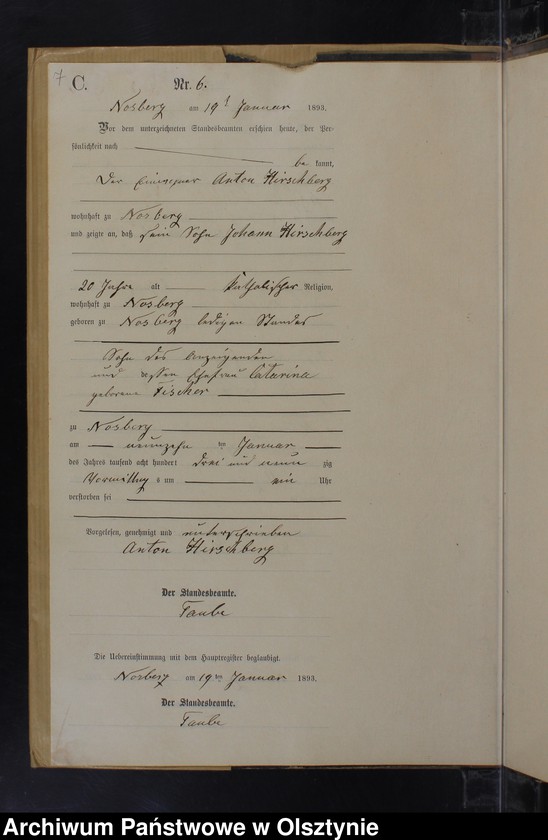 7 C. Nr. 6.
Nosberg am 19t Januar 1893.
Vor dem unterzeichneten Standesbeamten erschien heute, der Per-
sönlichkeit nach
be kannt,
Der Anton Hirschberg
wohnhaft zu Nosberg
und zeigte an, daß sein Sohn Johann Hirschberg
20 Jahre alt katholischer Religion,
wohnhaft zu Nosberg
geboren zu Nosberg ledigen Standes
Sohn des Anzeigenden
und dessen Ehefrau Catarina
geborene Fischer
zu Nosberg
am neunzehn ten Januar
des Jahres tausend acht hundert drei und neun zig
Vormittag s um ein Uhr
verstorben sei
Vorgelesen, genehmigt und unterschrieben
Anton Hirschberg
Der Standesbeamte.
Taube
Die Uebereinstimmung mit dem Hauptregister beglaubigt.
Nosberg am 19ten Januar 1893.
Der Standesbeamte.
Taube
Archiwum Państwowe w Olsztynie